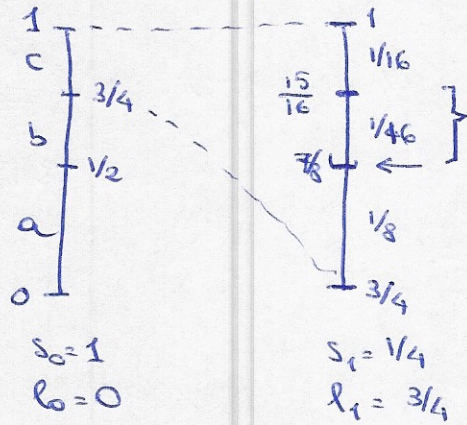 1
c
3/4
b
1/2
a
0
S₀ = 1
l₀ = 0
1
1/16
15/16
1/46
7/8
1/8
3/4
S₁ = 1/4
l₁ = 3/4